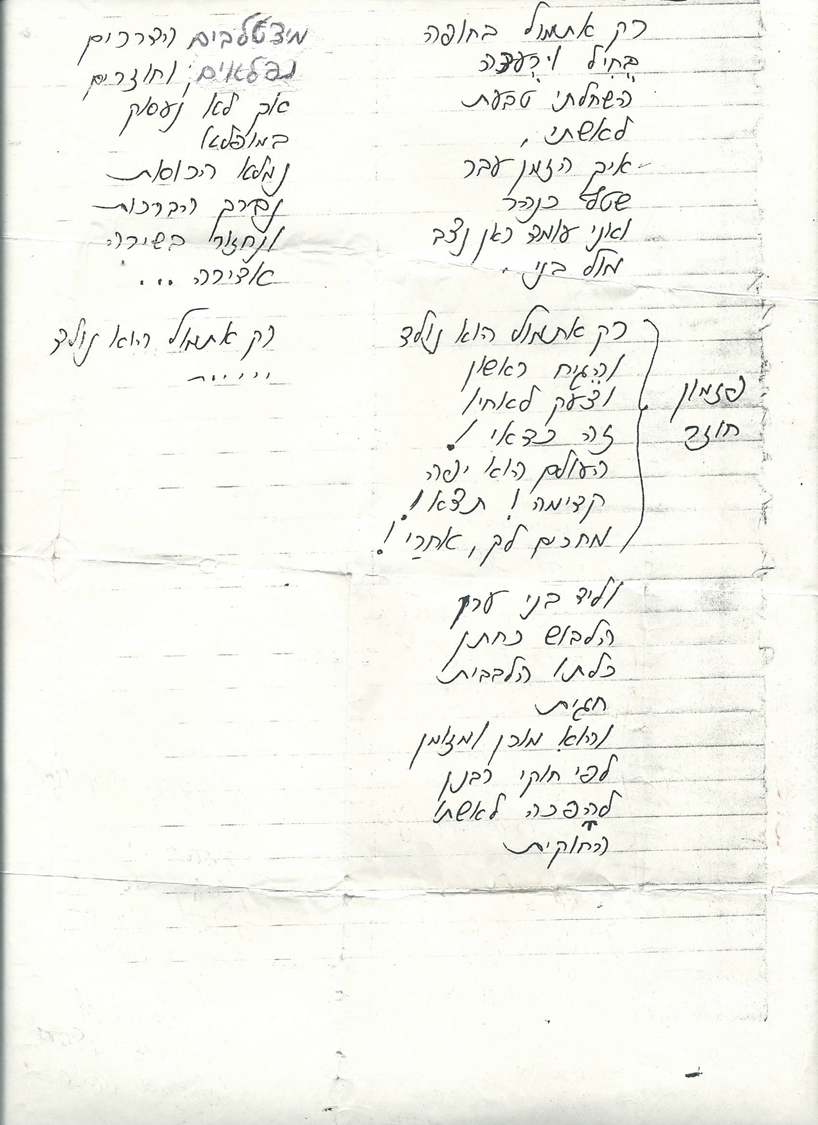 רק אתמול בחופה
בְּחִיל וִירְעָדָה
השחלתי טבעת
לאשתי,
איך הזמן עבר
שטף כנהר
ואני עומד כאן נצב
מול בני.
פזמון
חוזר
רק אתמול הוא נולד
והגיח ראשון
וצעק לאחיו
זה כדאי!
העולם הוא יפה
קדימה! תצא!
מחכים לך, אחרַי!
וליד בני ערן
הלבוש כחתן
כלתו הלבבית
חגית
והוא מוכן ומזומן
לפי חוקי רבנן
להפכה לאשתו
החוקית
מצטלבים הדרכים
נפלאים, וחוזרים
אך לא נעסוק
במופלא
נמלא הכוסות
נברך הברכות
ונחזור בשירה
אדירה ...
רק אתמול הוא נולד
......